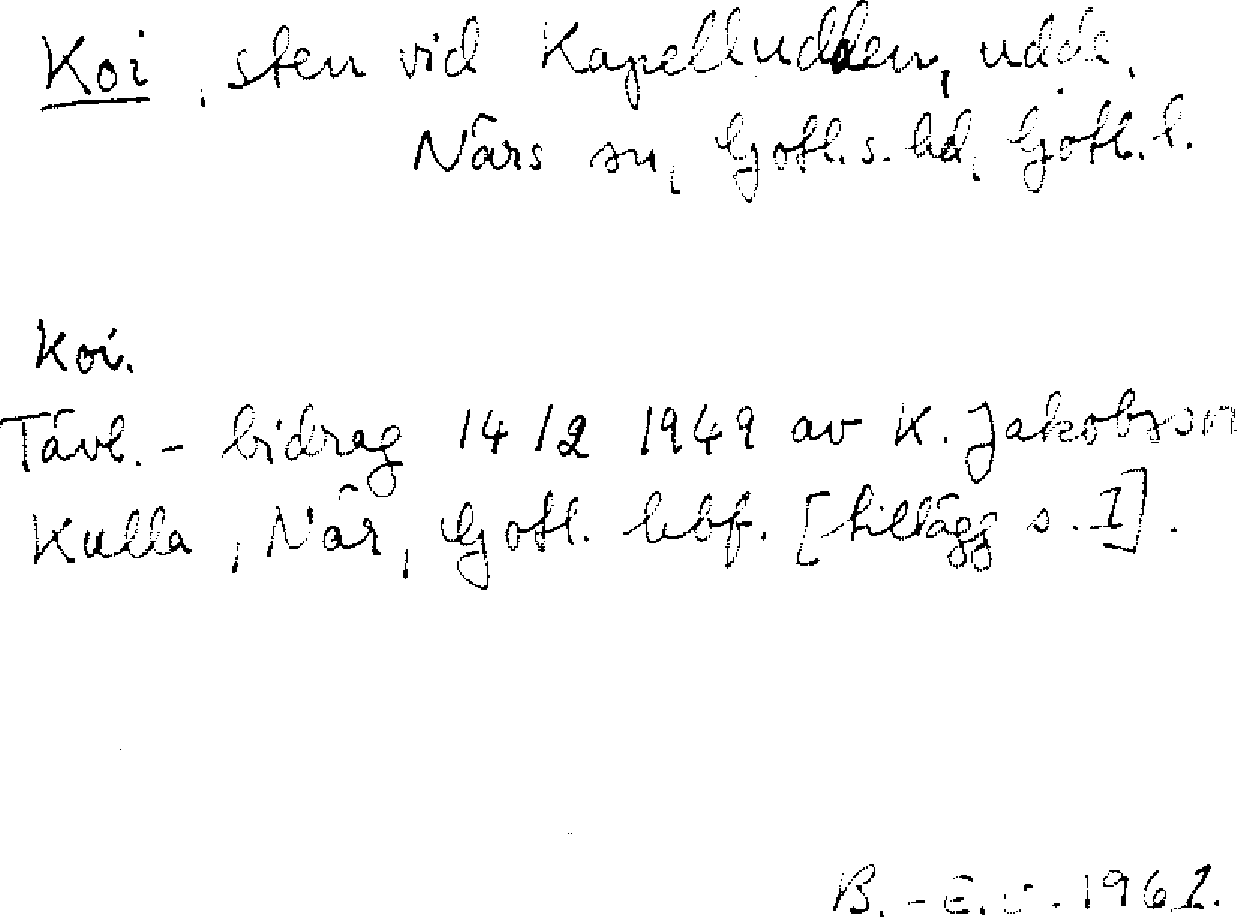 Koi, sten vid Kapelludden, udde,
Närs sn, Gotl. s. hd, Gotl. l.
Koi.
Tävl. - bidrag 14/2 1949 av K. Jakobsson
Kulla, När, Gotl. hbf. [tillägg s. I].
B. - E. 1962.